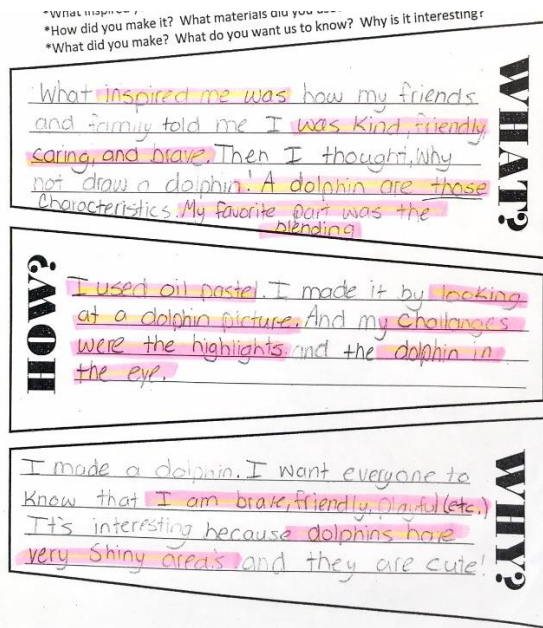 *What inspired
*How did you make it? What materials did you use?
*What did you make? What do you want us to know? Why is it interesting?
WHAT?
What inspired me was how my friends
and family told me I was kind, friendly,
caring, and brave. Then I thought, Why
not draw a dolphin! A dolphin are those
characteristics. My favorite part was the
blending
HOW?
I used oil pastel. I made it by looking
at a dolphin picture. And my challanges
were the highlights. and the dolphin in
the eye.
WHY?
I made a dolphin. I want everyone to
know that I am brave, friendly, playful (etc.)
It's interesting because dolphins have
very shiny area's and they are cute!